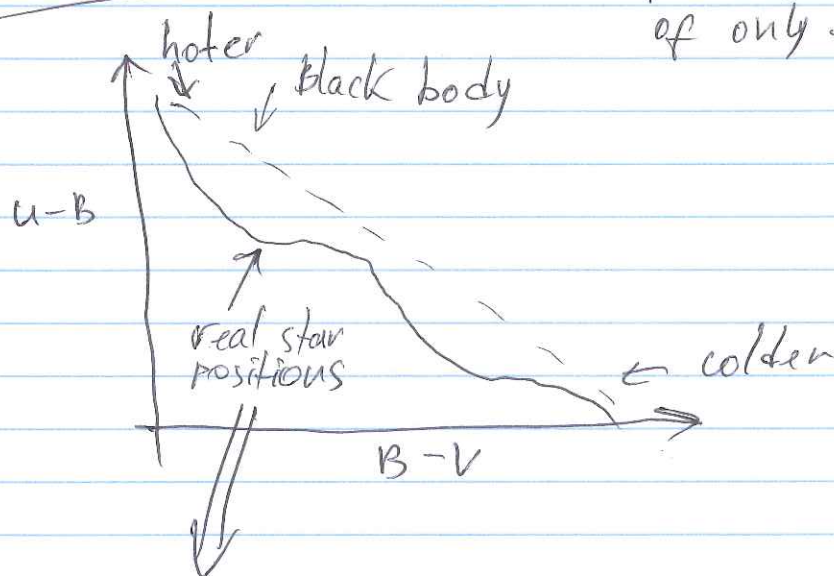 of only.
hoter
Black body
U-B
real star
positions
colder
B-V